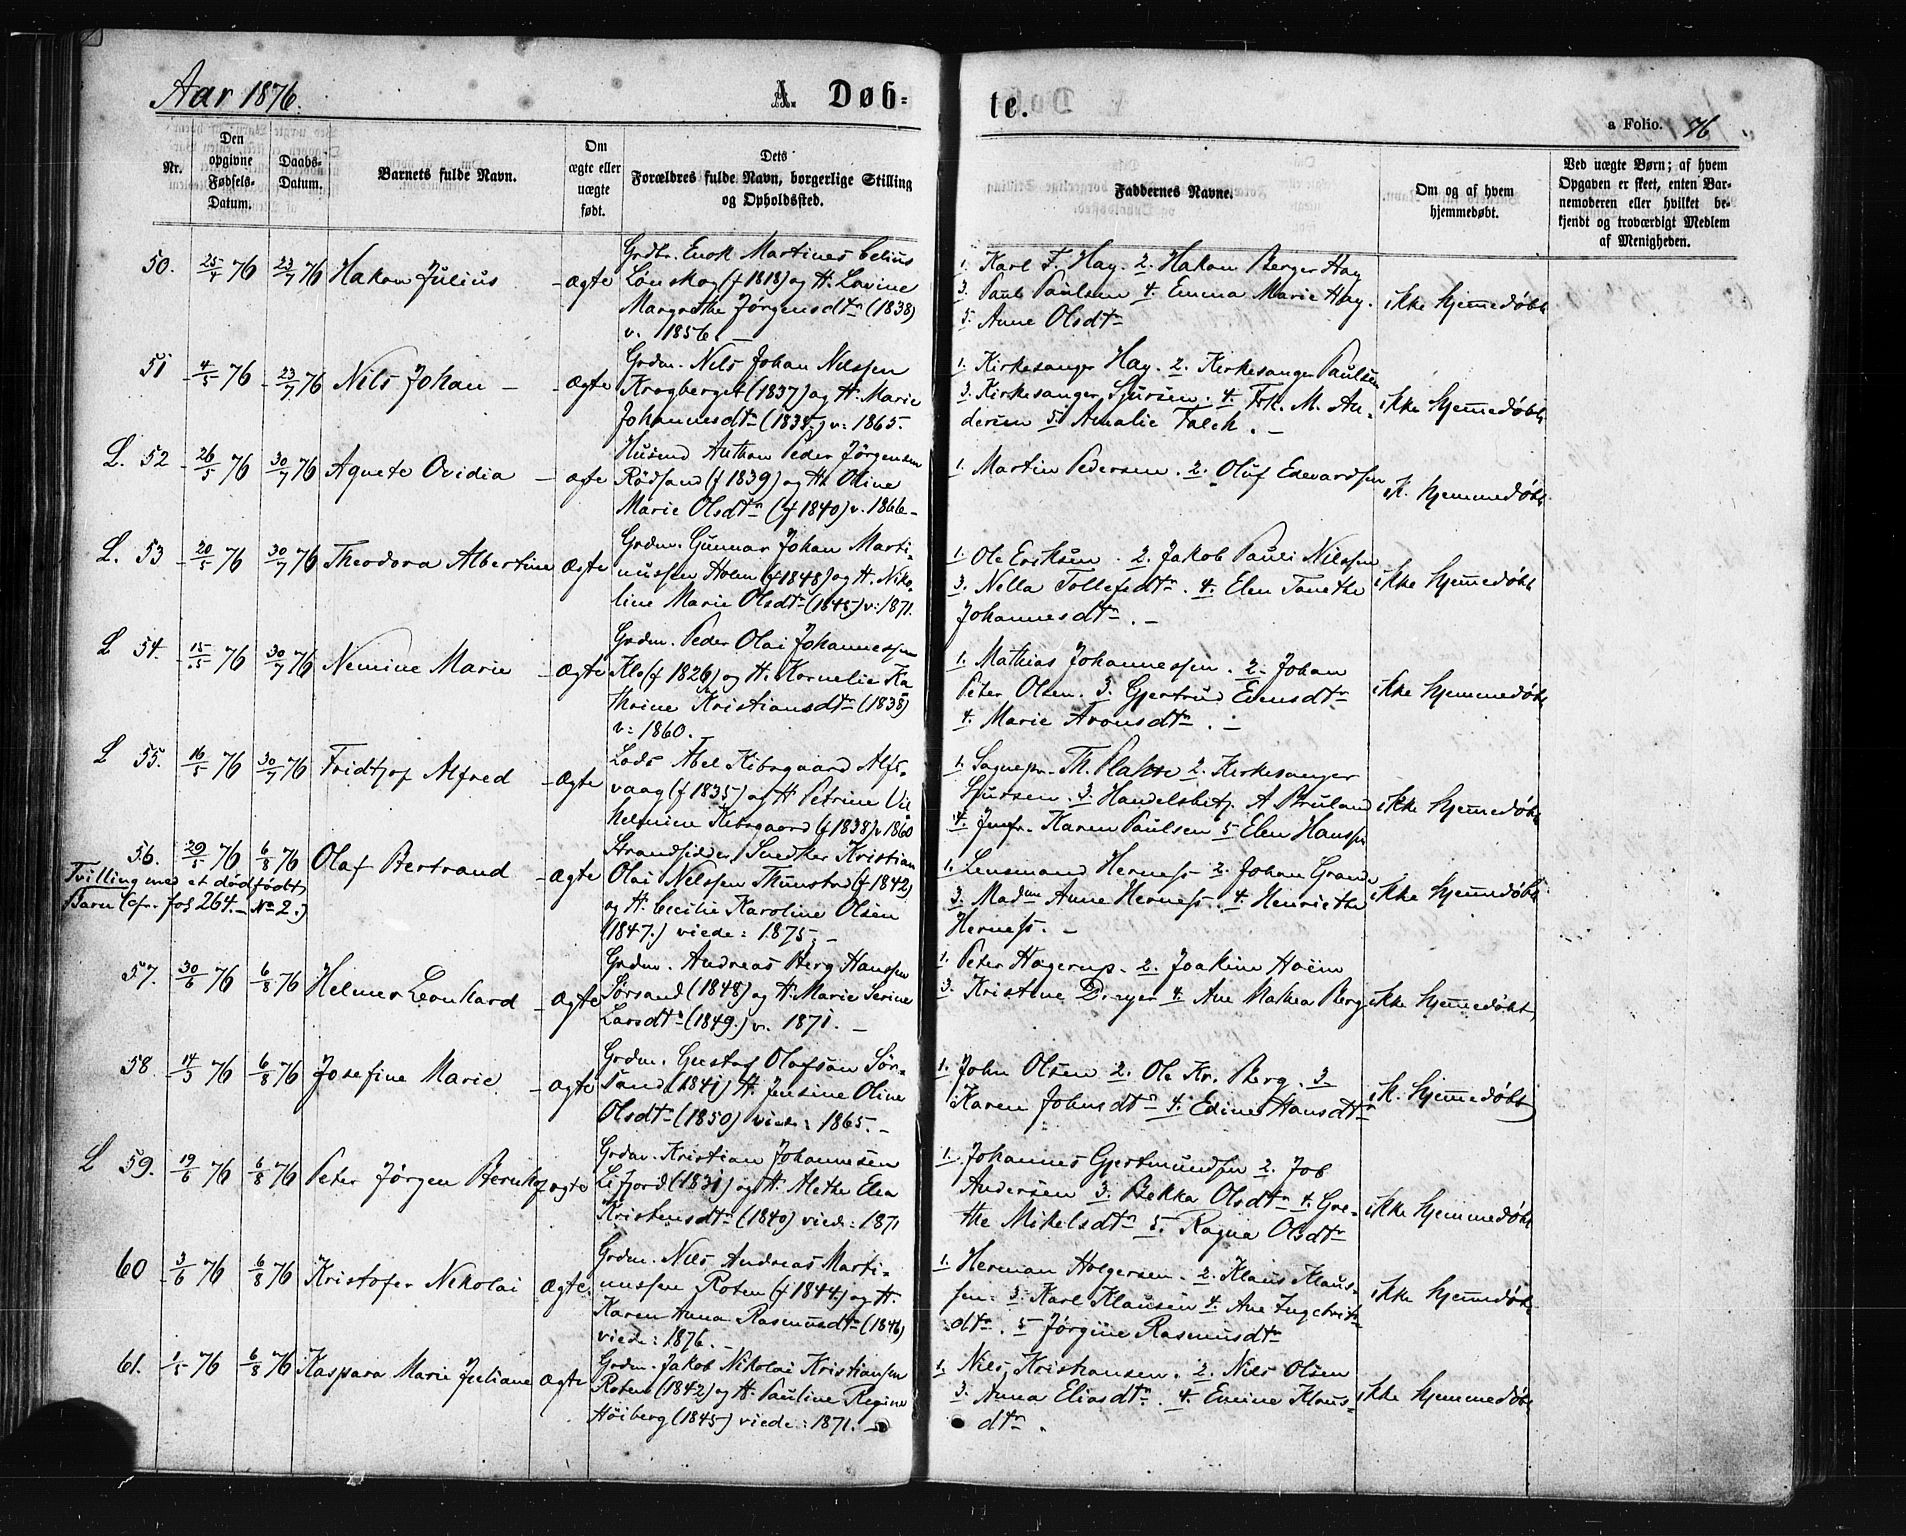 Aar 1876.
A. Døb-
te.
a Folio. 76
Nr.
Den opgivne Fødsels-Datum.
Daabs-Datum.
Barnets fulde Navn.
Om ægte eller uægte født.
Dets Forældres fulde Navn, borgerlige Stilling og Opholdssted.
Faddernes Navne.
Om og af hvem hjemmedøbt.
Ved uægte Børn; af hvem Opgaven er skeet, enten Barnemoderen eller hvilket bekjendt og troværdigt Medlem af Menigheden.
50. 25/4 76 23/7 76 Hakon Julius - ægte
Grdbr. Enok Martines Celius
Lønskog (f 1818) og H. Lovine
Margrethe Jørgensdtr (1838)
v. 1856. —
1. Karl F. Hay. 2. Hakon Berger Hay
3. Pauls Paulsen 4. Emma Marie Hay.
5. Anne Olsdtr
ikke hjemmedøbt
51 4/5 76 23/7 76 Nils Johan - ægte
Grdm. Nils Johan Nilssen
Krogberget (1837) og H. Marie
Johannesdtr (1834.) v: 1865.
1. Kirkesanger Hay. 2. Kirkesanger Paulsen
3. Kirkesanger Sjursen. 4. Frk. M. An-
dersen 5. Amalie Falch. —
ikke hjemmedøbt
L. 52 26/5 76 30/7 76 Agnete Ovidia - ægte
Husmd Anthon Peder Jørgensen
Rødsand (f 1839) og H. Oline
Marie Olsdtr (f 1840) v. 1866-
1. Martin Pedersen. 2. Oluf Edevardsen
ik. hjemmedøbt
L. 53 20/5 76 30/7 76 Theodora Albertine ægte
Grdm. Gunnar Johan Marti-
nussen Holm (f 1848) og H. Niko-
line Marie Olsdtr (1845) v: 1871.
1. Ole Eriksen. 2. Jakob Pauli Nilssen
3. Nella Tollefsdtr. 4. Elen Tanethe
Johannesdtr. —
ikke hjemmedøbt
L 54. 15/5 76 30/7 76 Nemine Marie - ægte
Grdm. Peder Olai Johannessen
Klo (f 1826) og H. Kornelie Ka
thrine Kristiansdtr (1838)
v: 1860.
1. Mathias Johannessen. 2. Johan
Peter Olsen. 3. Gjertrud Evensdtr
4. Marie Aronsdtr. —
ikke hjemmedøbt
L 55. 16/5 76 30/7 76 Fridtjof Alfred - ægte
Lods Abel Kibsgaard Alfs-
vaag (f 1835) og H Petrine Vil
helmine Kibsgaard (f 1838) v 1860
1. Sognepr. Th. Plahte 2. Kirkesanger
Sjursen. 3. Handelsbetj. A Bruland
4. Jmfr. Karen Paulsen 5 Elen Hanssen
ikke hjemmedøbt
56. 29/5 76 6/8 76 Olaf Bertrand - ægte
Tvilling med et dødfødt
Barn (cfr. fol 264. — No 2.)
Strandsidder Snedker Kristian
Olai Nilssen Thunstad (f 1842)
og H. Cecilie Karoline Olsen
(1847.) viede: 1875. —
1. Lensmand Herness 2. Johan Grande
3. Madm Anne Herness. 4. Henriethe
Herness. —
ikke hjemmedøbt
57. 30/6 76 6/8 76 Helmer Leonhard - ægte
Grdm. Andreas Berg Hanssen
Sørsand (1848) og H. Marie Serine
Larsdtr (1849.) v. 1871. —
1. Peter Hagerup. 2. Joakim Hoem
3. Kristine Dreyer 4. Ane Mathea Berg
ikke hjemmedøbt
58. 14/5 76 6/8 76 Josefine Marie - ægte
Grdm. Gustaf Olafson Sør-
sand (1841) H. Jensine Oline
Olsdtr (1850) viede: 1865. —
1. John Olsen 2. Ole Kr. Berg. 3.
Karen Johnsdtr 4. Edine Hansdtr
ik. hjemmedøbt
L 59. 19/6 76 6/8 76 Peter Jørgen Bernhof ægte
Grdm. Kristian Johannesen
Lifjord (1831) og H. Alethe Elea
Kristensdtr (1840) viede: 1871
1. Johannes Gjertmundsen 2. Job
Andersen 3. Bekka Olsdtr 4. Gre-
the Mikelsdtr 5. Ragna Olsdtr
ikke hjemmedøbt
60 3/6 76 6/8 76 Kristofer Nikolai ægte.
Grdm. Nils Andreas Marti-
nussen Roten (f 1844) og H.
Karen Anna Rasmusdtr (1846)
viede: 1876. —
1. Herman Holgersen. 2. Klaus Klaus-
sen. 3. Karl Klausen 4. Ane Ingebrikt
dtr. 5 Jørgine Rasmusdtr
ikke hjemmedøbt
61. 1/5 76 6/8 76 Kaspara Marie Juliane ægte
Grdm. Jakob Nikolai Kristiansen
Roten (1842) og H. Pauline Regine
Høiberg (1845) viede: 1871. —
1. Nils Kristiansen. 2. Nils Olsen
3. Anna Eliasdtr. 4. Emine Klaus-
dtr.
ikke hjemmedøbt